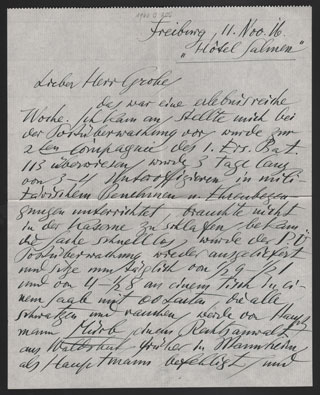 Freiburg, 11. Nov. 16.
"Hôtel Salmen"
Lieber Herr Grohe
das war eine erlebnisreiche
Woche. Ich kam an stellte mich bei
der Postüberwachung vor wurde zur
2ten Compagnie des 1. Ers. Bat.
113 überwiesen wurde 3 Tage lang
von 3-4 Unteroffizieren in mili-
tärischem Benehmen u Ehrenbezeu-
gungen unterrichtet, brauchte nicht
in der Kaserne zu schlafen, bekam
die schnell los, wurde der P.Ü.
Postüberwachung wieder ausgeliefert
und sitze nun täglich von 1/2 9 - 1/2 1
und von 4 - 1/2 8 an einem Tisch in ei-
nem Saale mit 60 Leuten, die alle
schwatzen und rauchen, werde von Haupt
mann einem Rechtsanwalt
aus Waldshut früher in Mannheim
als Hauptmann befehligt und